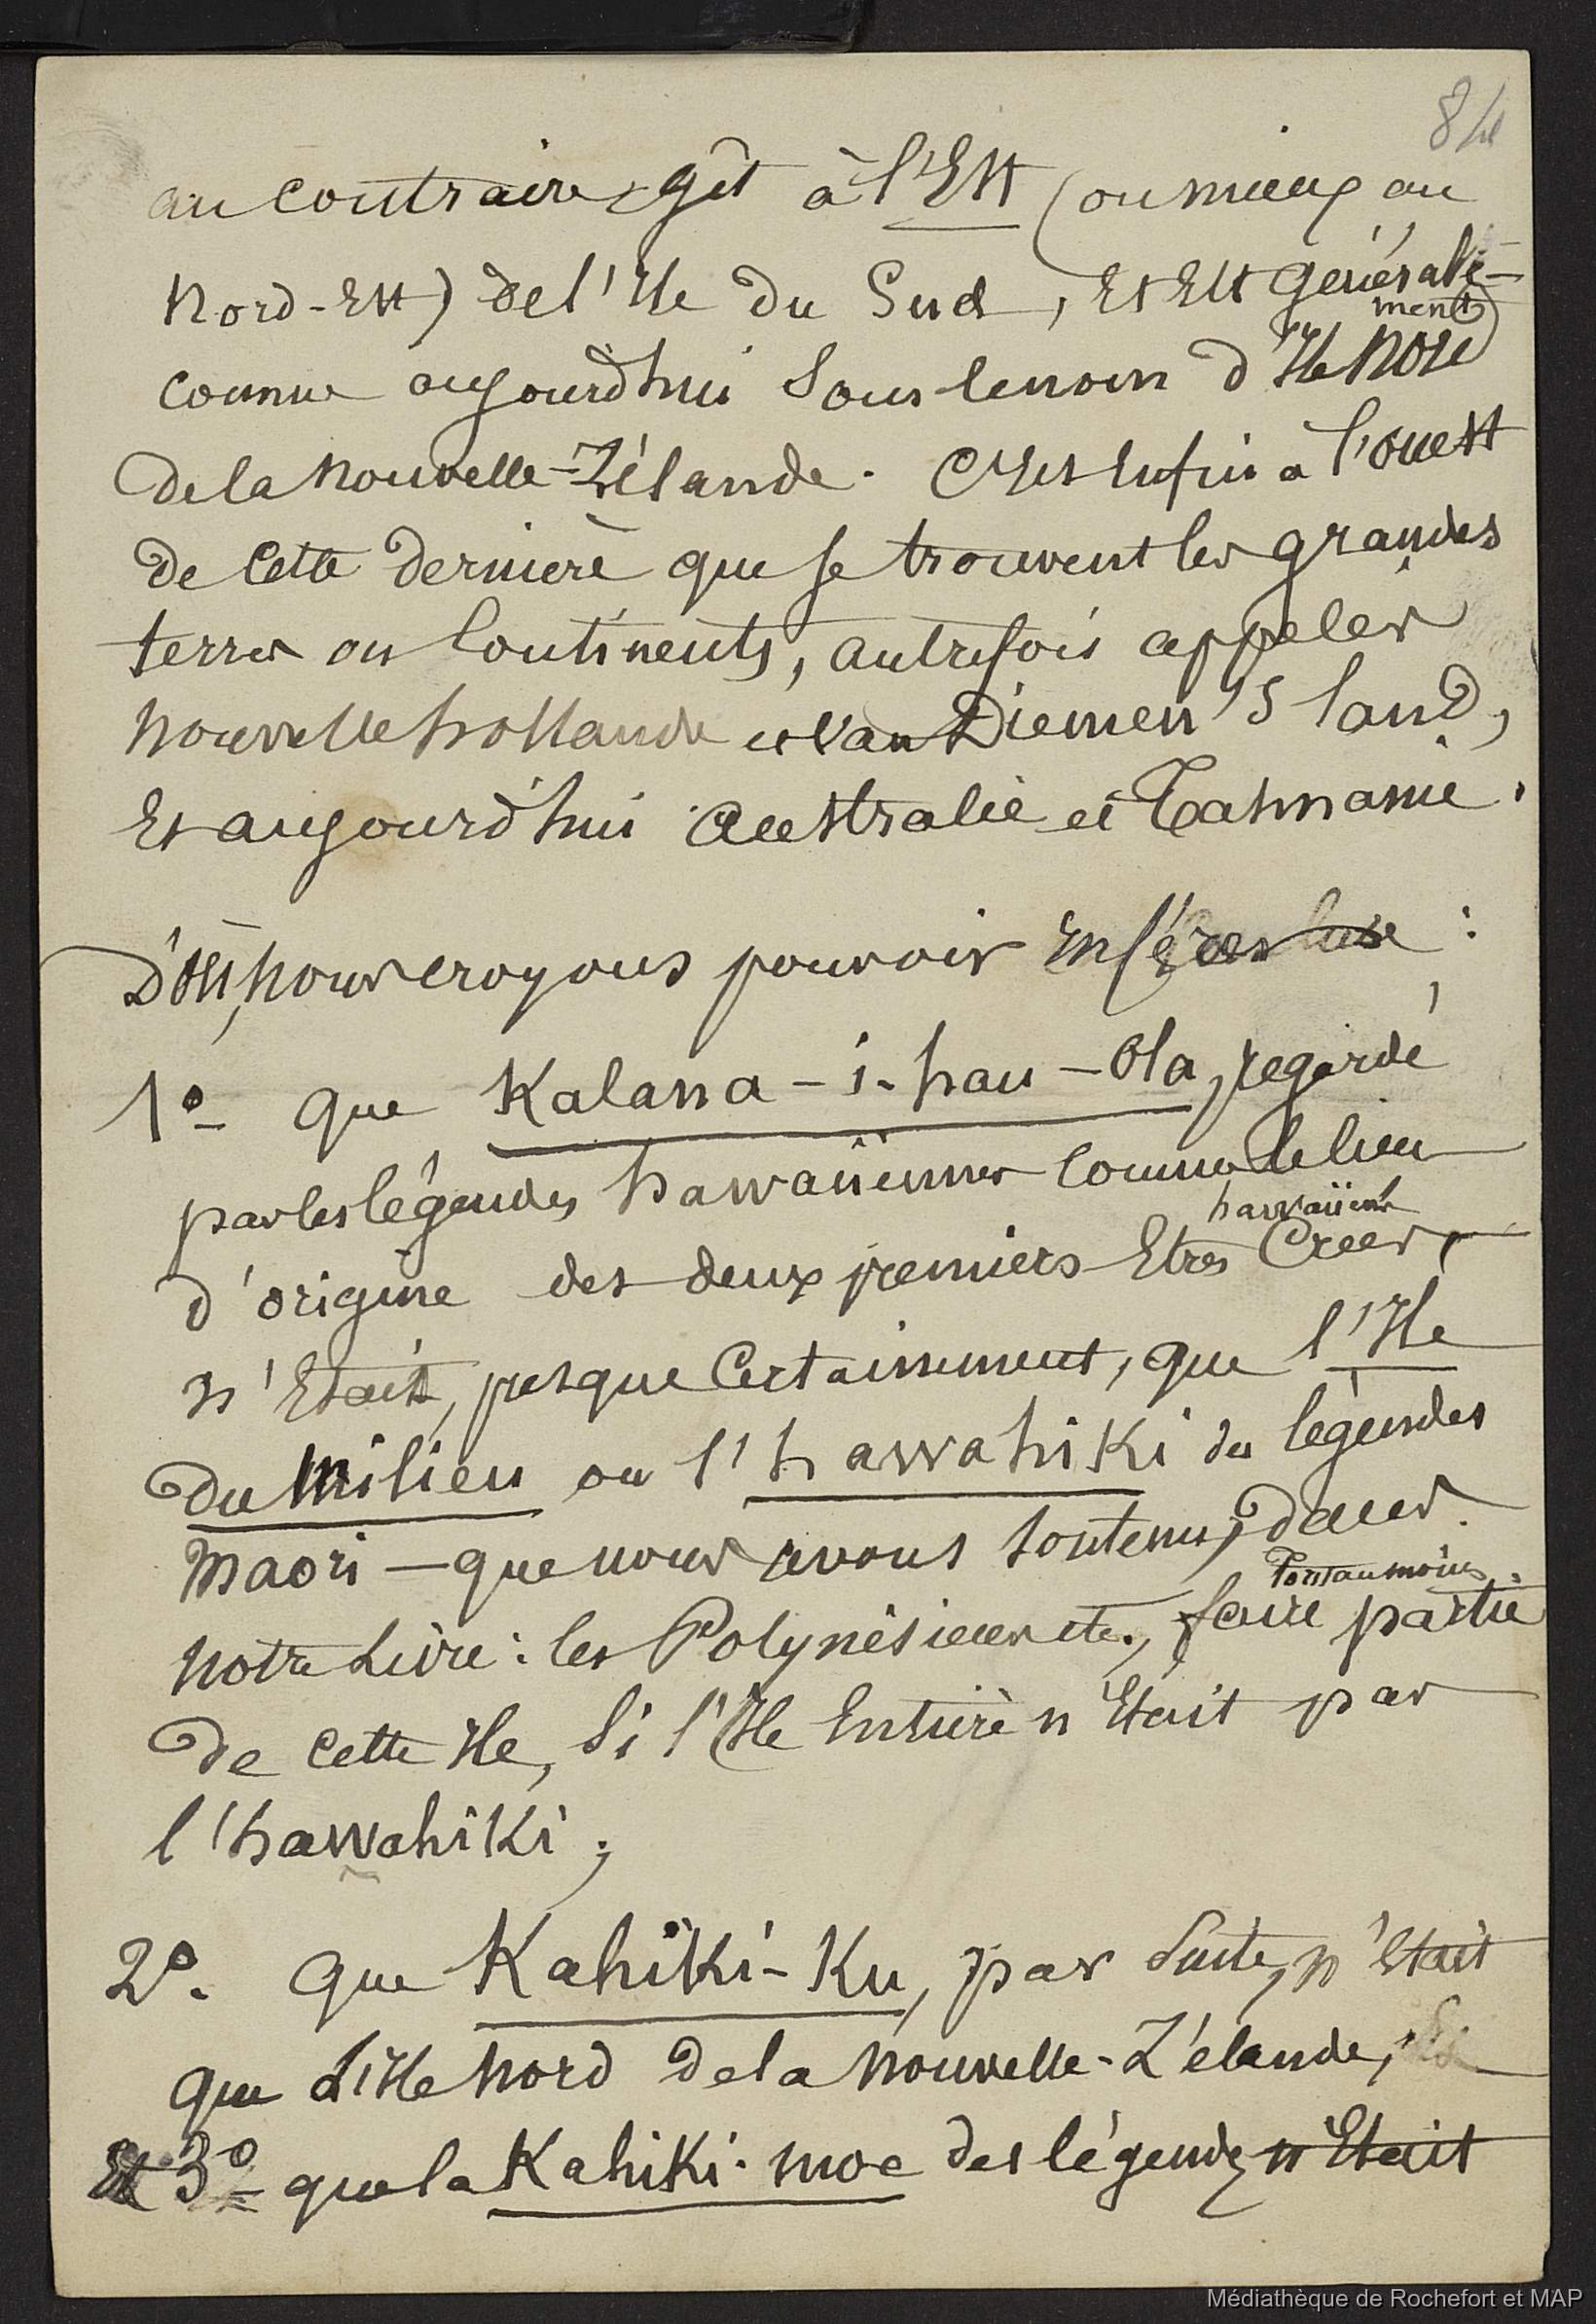 84
au contraire, gît à l'Est (ou mieux au
Nord-Est) de l'Ile du Sud, et est générale-
ment
connue aujourd'hui sous le nom d'Ile Nord
de la Nouvelle-Zélande. C'est enfin à l'ouest
de cette dernière que se trouvent les grandes
terres ou Continents, autrefois appelés
Nouvelle hollande et Van Diemen's land,
Et aujourd'hui Australie et Tasmanie.
D'où, nous croyons pouvoir inférer :
1º- que Kalana-i-hau-Ola, regardé
par les légendes hawaiiennes comme le lieu
hawaiiens
d'origine des deux premiers Etres Créés,
n'Etait, presque Certainement, que l'Ile
du Milieu ou l'hawahiki des légendes
Maori — que nous avons soutenu, dans
Tout au moins
notre Livre : les Polynésiens etc., faire partie
de cette Ile, si l'Ile Entière n'Etait pas
l'hawahiki ;
2º. que Kahiki-Ku, par suite, n'était
que L'Ile Nord de la Nouvelle-Zélande, Et
Et 3º- que la Kahiki-moe des légendes n'Etait
Médiathèque de Rochefort et MAP